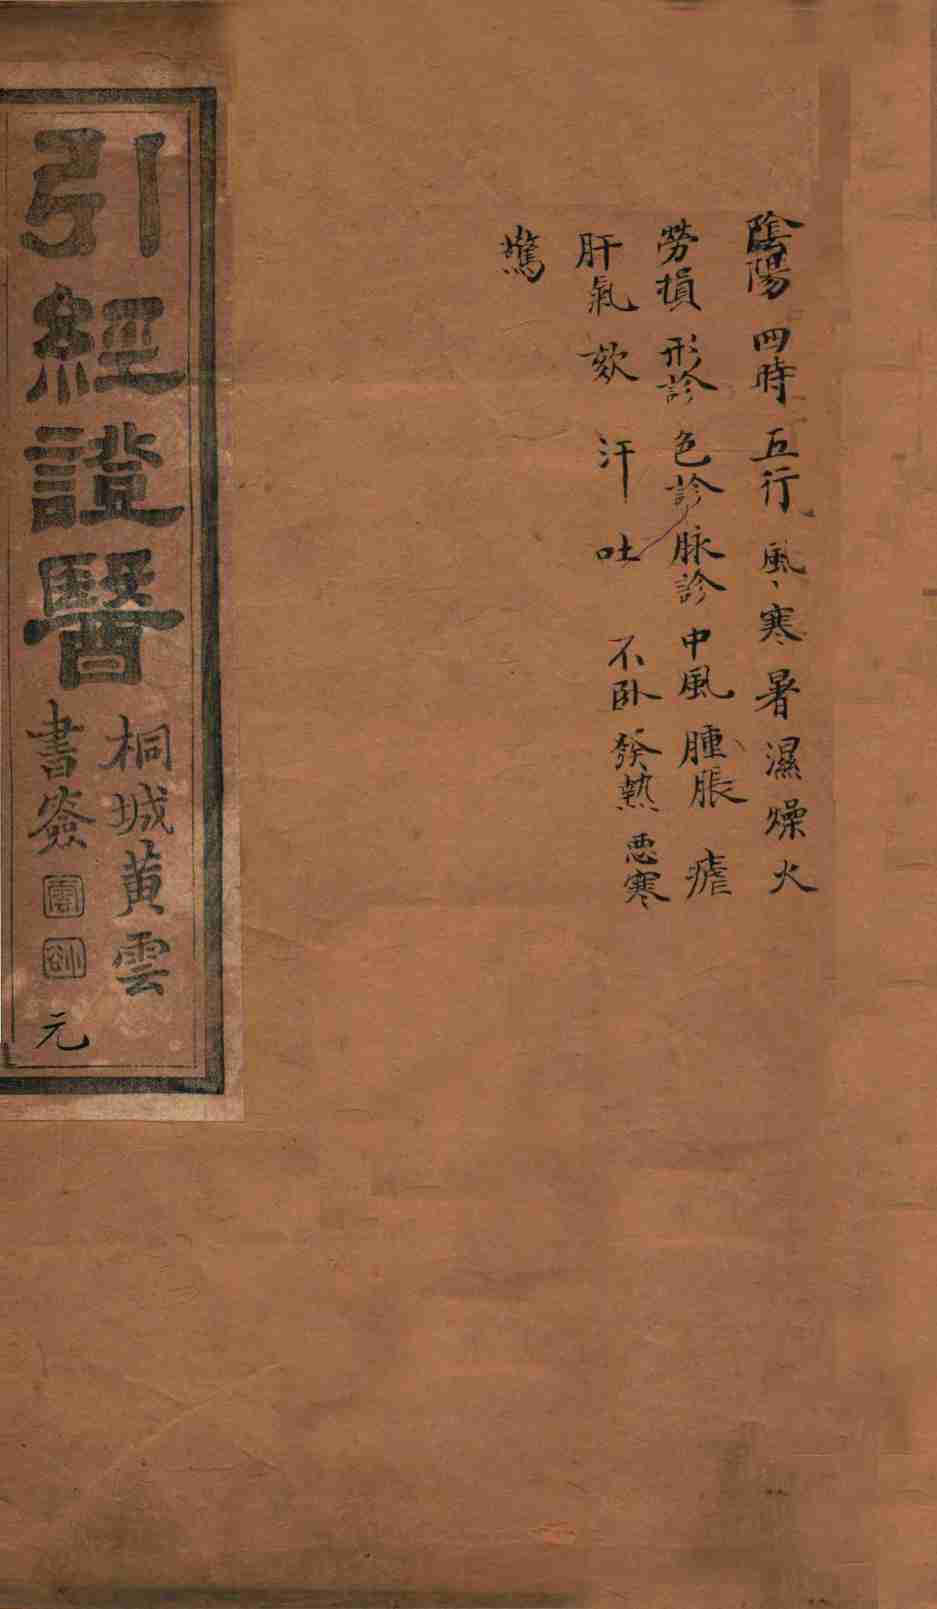 陰陽 四時 五行 風 寒 暑 濕 燥 火
勞損 形診 色診 脉診 中風 腫脹 瘧
肝氣 欬 汗 吐 不臥 發熱 惡寒
驚
引經證醫
桐城黄雲
書簽
元